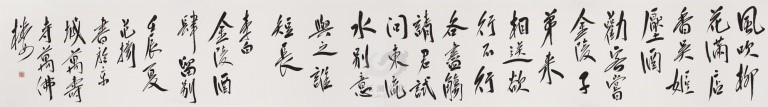 風吹柳
花滿店
香吳姬
壓酒
勸客嘗
金陵子
弟來
相送欲
行不行
各盡觴
請君試
問東流
水別意
與之誰
短長
李白
金陵酒
肆留別
壬辰夏
范
書於京
城萬壽
寺萬佛
樓